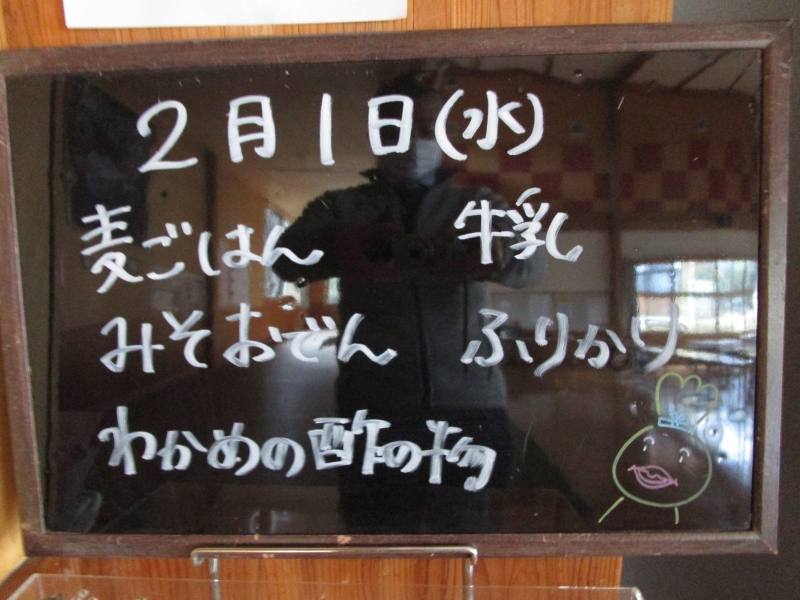 2月1日(水)
麦ごはん 牛乳
みそおでん ふりかけ
わかめの酢の物